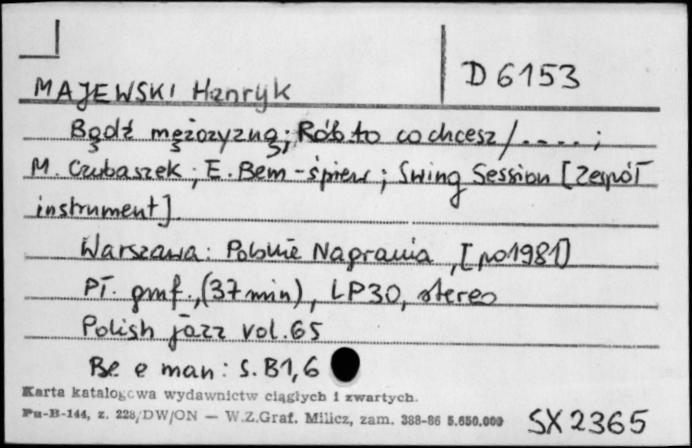 D 6153
MAJEWSKI Henryk
Bądź mężczyzną; Rób to co chcesz / ....;
M. Czubaszek ; E. Bem - śpiew ; Swing Session [Zespół
instrument]
Warszawa: Polskie Nagrania, [po 1981]
Pł. gmf., (37 min), LP30, stereo
Polish jazz vol. 65
Be e man: s. B1,6
Karta katalogowa wydawnictw ciągłych i zwartych.
Pu-B-144, z. 228/DW/ON — W.Z.Graf. Milicz, zam. 388-86 5.650.000
SX 2365